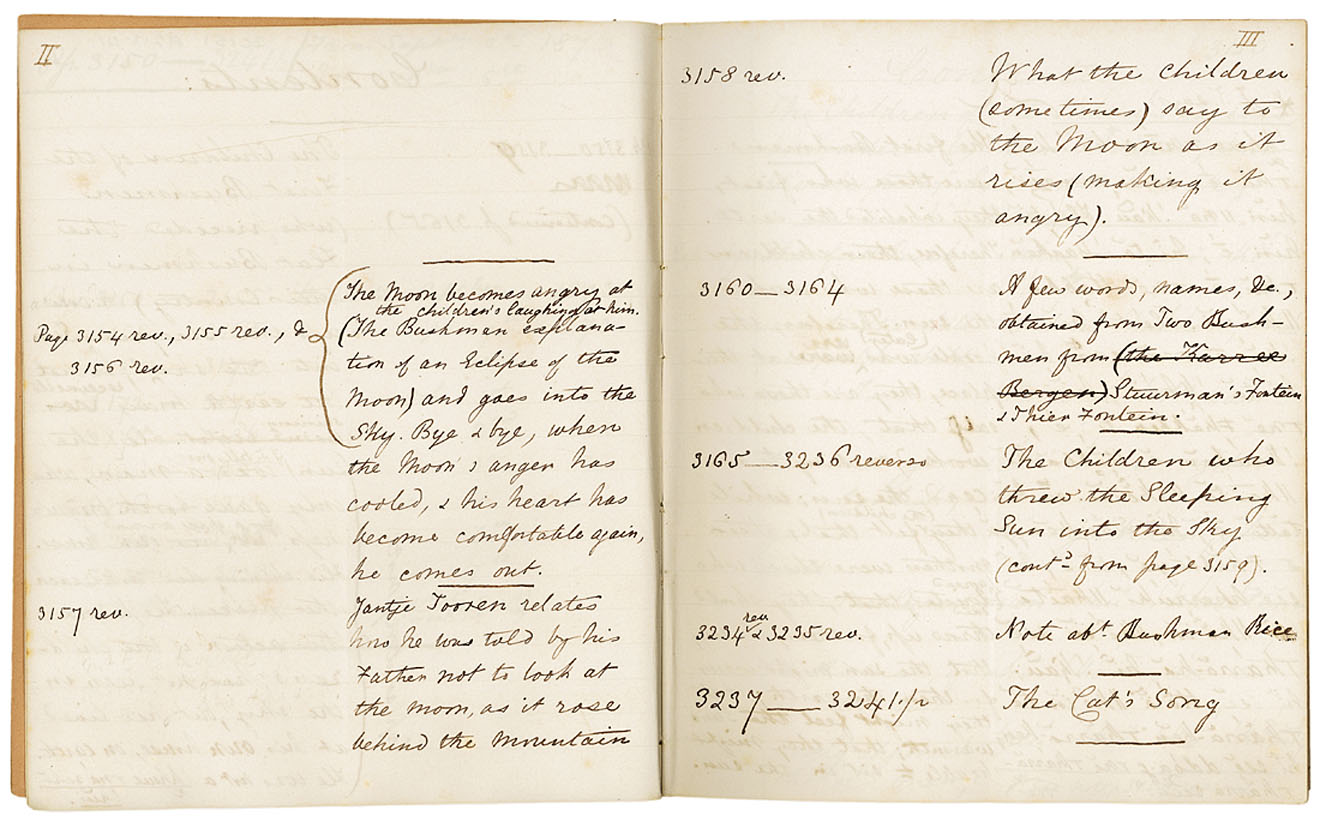 II
The Moon becomes angry at
the children's laughing at him.
Page 3154 rev., 3155 rev., &
3156 rev.
(The Bushman explana-
tion of an Eclipse of the
Moon) and goes into the
Sky. Bye & bye, when
the Moon's anger has
cooled, & his heart has
become comfortable again,
he comes out.
3157 rev.
Jantje Tooren relates
how he was told by his
Father not to look at
the moon, as it rose
behind the mountain
III
3158 rev.
What the children
(sometimes) say to
the Moon as it
rises (making it
angry).
3160 — 3164
A few words, names, &c.,
obtained from Two Bush-
men from (the Karree
Bergen) Stuurman's Fontein
& Thier Fontein.
3165 — 3236 reverso
The Children who
threw the Sleeping
Sun into the Sky
(contd from page 3159).
3234 rev & 3235 rev.
Note abt Bushman Rice
3237 — 3241 1/2
The Cat's Song